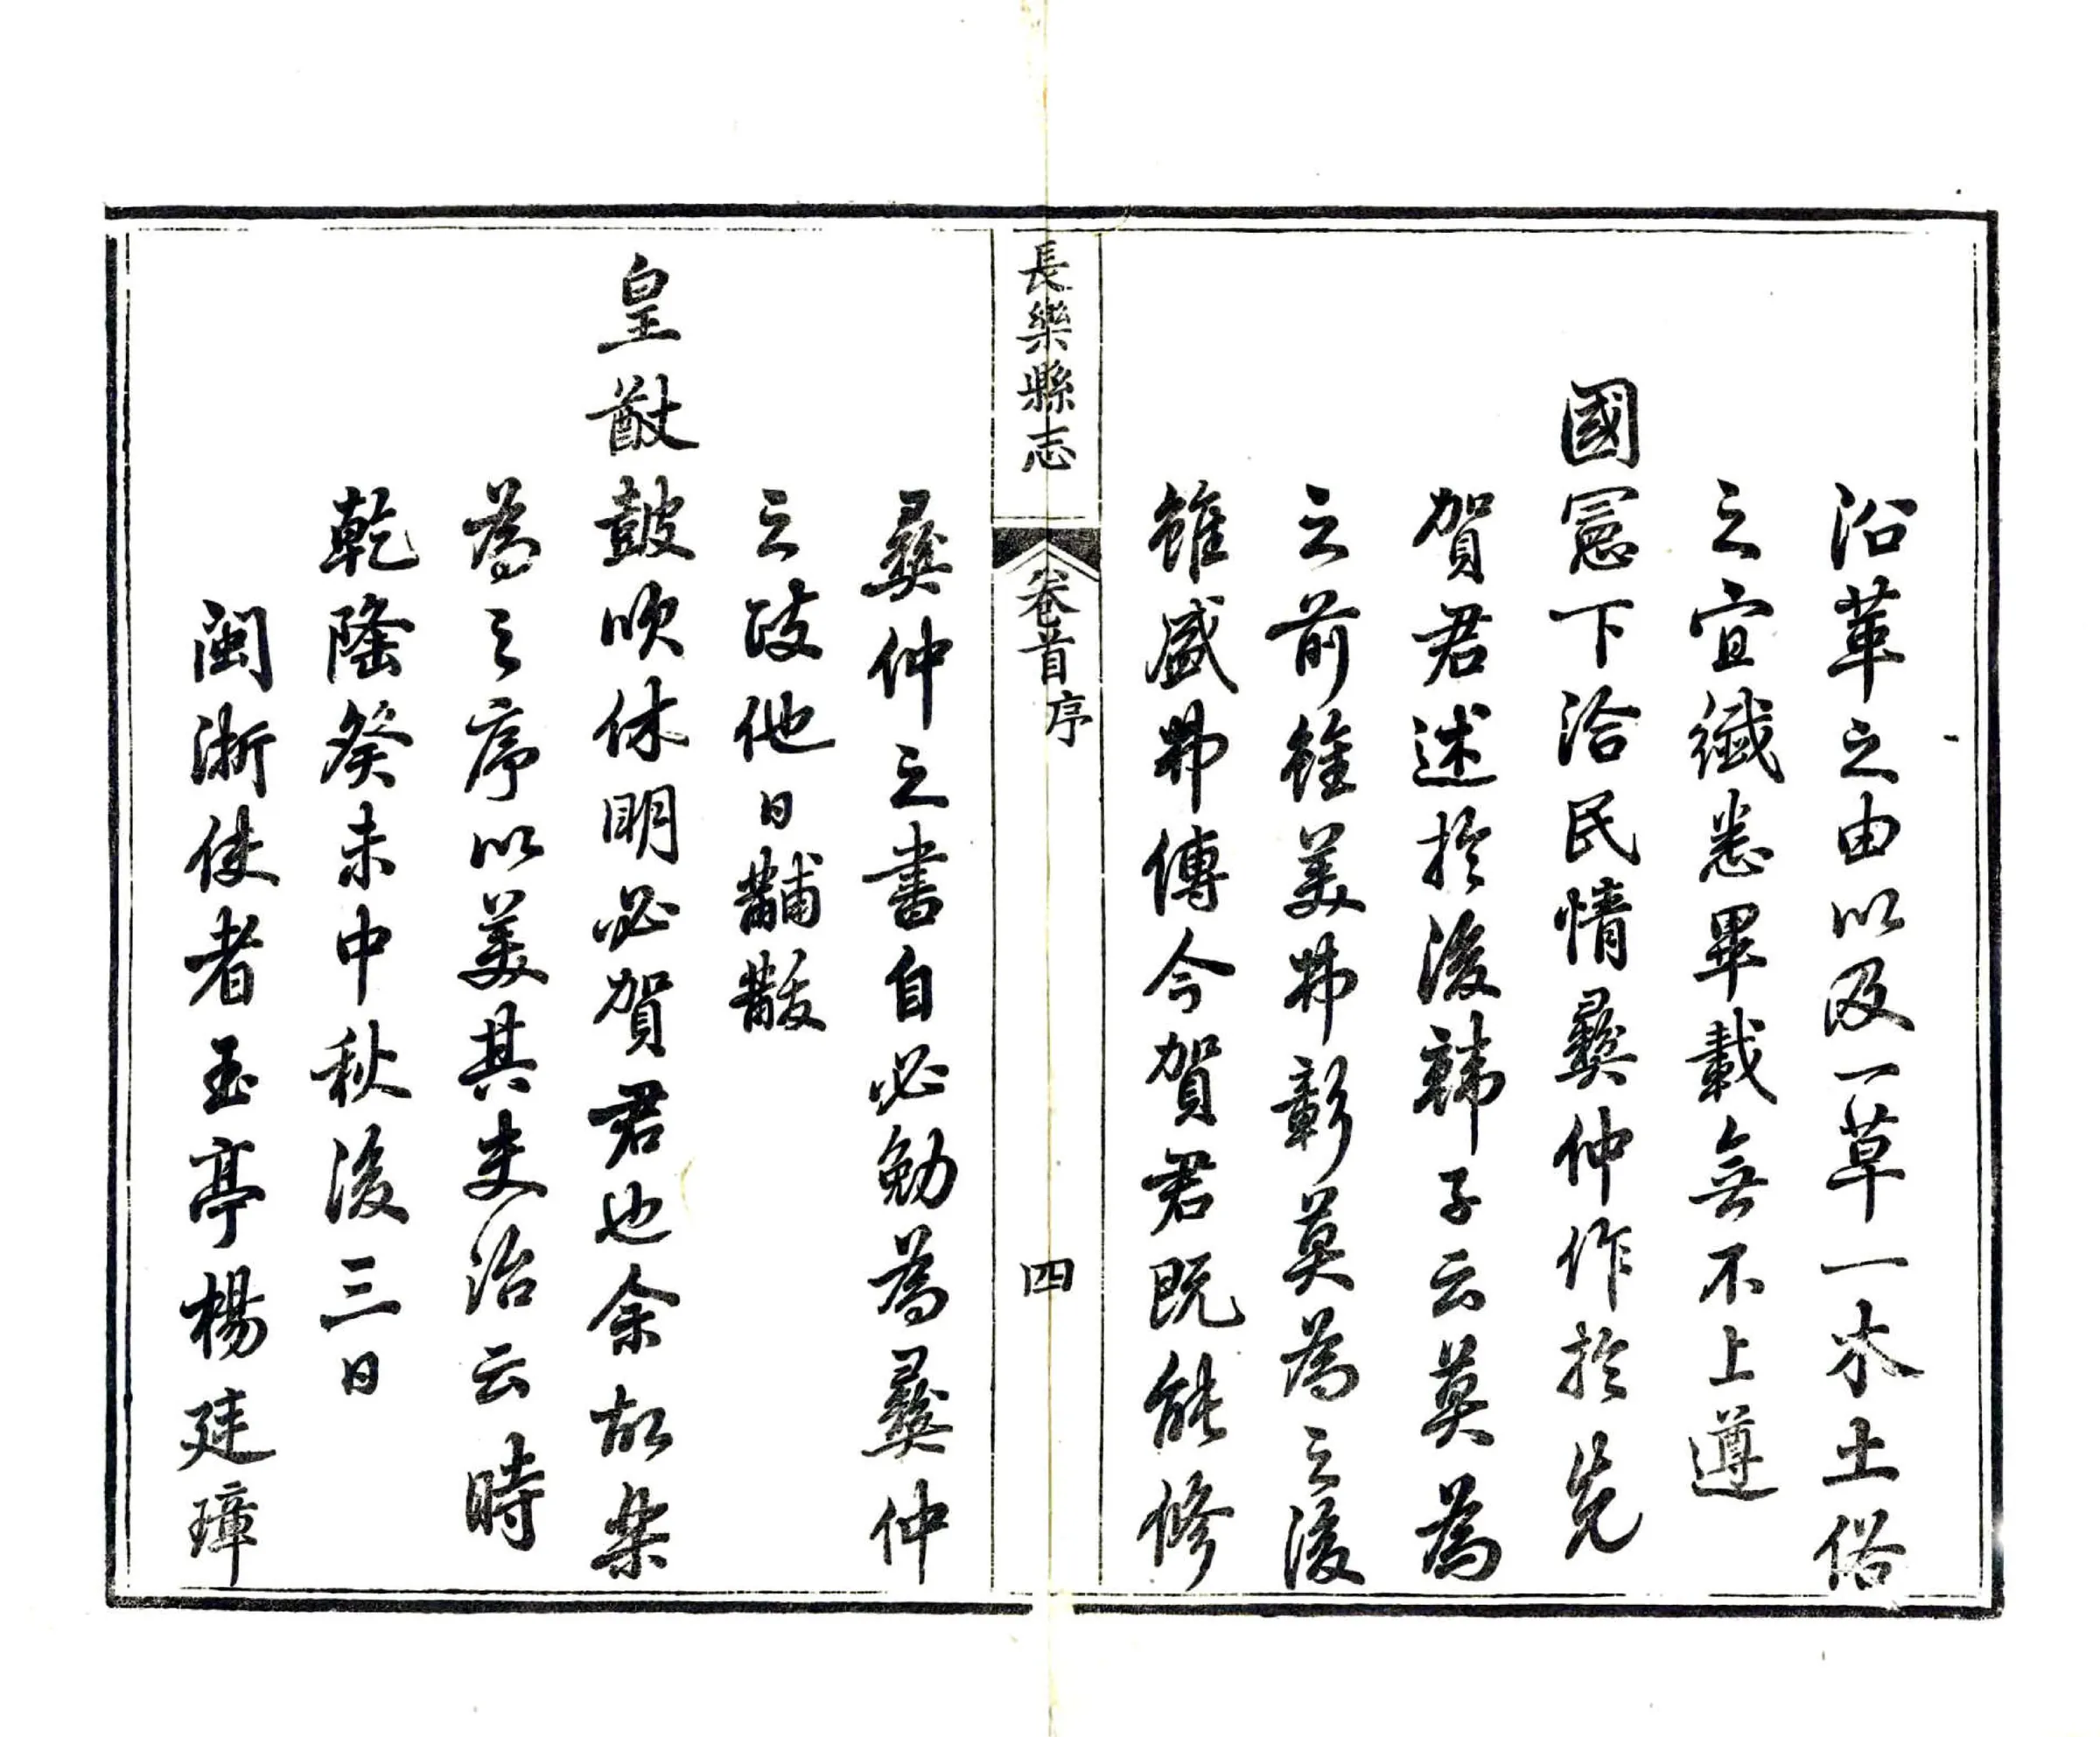 沿革之由以及一草一木土俗
之宜纖悉畢載無不上遵
國憲下洽民情彝仲作於先
賀君述於後韓子云莫為
之前雖美弗彰莫為之後
雖盛弗傳今賀君既能修
長樂縣志
卷首
序
四
彝仲之書自必勉為彝仲
之政他日黼黻
皇猷鼓吹休明必賀君也余故樂
為之序以美其吏治云時
乾隆癸未中秋後三日
閩浙使者玉亭楊廷璋